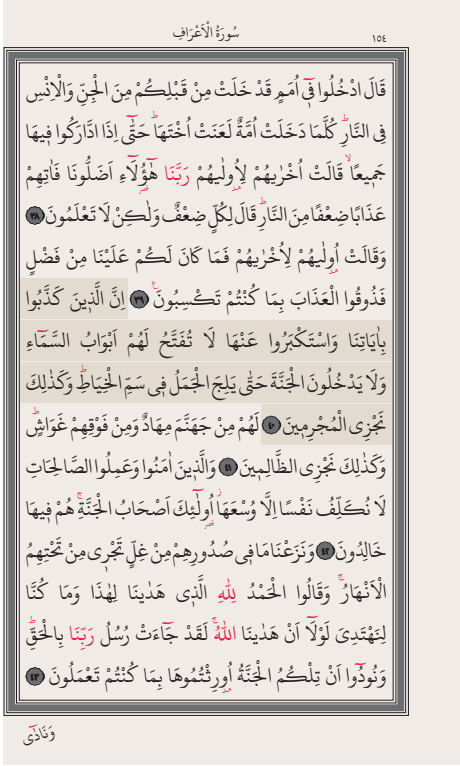 سُورَةُ الْاَعْرَافِ
١٥٤
قَالَ ادْخُلُوا فٓى اُمَمٍ قَدْ خَلَتْ مِنْ قَبْلِكُمْ مِنَ الْجِنِّ وَالْاِنْسِ
فِى النَّارِۜ كُلَّمَا دَخَلَتْ اُمَّةٌ لَعَنَتْ اُخْتَهَاۜ حَتّٰٓى اِذَا ادَّارَكُوا فٖيهَا
جَمٖيعًاۙ قَالَتْ اُخْرٰيهُمْ لِاُو۫لٰيهُمْ رَبَّنَا هٰٓؤُ۬لَٓاءِ اَضَلُّونَا فَاٰتِهِمْ
عَذَابًا ضِعْفًا مِنَ النَّارِۜ قَالَ لِكُلٍّ ضِعْفٌ وَلٰكِنْ لَا تَعْلَمُونَ ٣٨
وَقَالَتْ اُو۫لٰيهُمْ لِاُخْرٰيهُمْ فَمَا كَانَ لَكُمْ عَلَيْنَا مِنْ فَضْلٍ
فَذُوقُوا الْعَذَابَ بِمَا كُنْتُمْ تَكْسِبُونَۚ ٣٩ اِنَّ الَّذٖينَ كَذَّبُوا
بِاٰيَاتِنَا وَاسْتَكْبَرُوا عَنْهَا لَا تُفَتَّحُ لَهُمْ اَبْوَابُ السَّمَٓاءِ
وَلَا يَدْخُلُونَ الْجَنَّةَ حَتّٰى يَلِجَ الْجَمَلُ فٖى سَمِّ الْخِيَاطِۜ وَكَذٰلِكَ
نَجْزِى الْمُجْرِمٖينَ ٤٠ لَهُمْ مِنْ جَهَنَّمَ مِهَادٌ وَمِنْ فَوْقِهِمْ غَوَاشٍۜ
وَكَذٰلِكَ نَجْزِى الظَّالِمٖينَ ٤١ وَالَّذٖينَ اٰمَنُوا وَعَمِلُوا الصَّالِحَاتِ
لَا نُكَلِّفُ نَفْسًا اِلَّا وُسْعَهَاۘ اُو۬لٰٓئِكَ اَصْحَابُ الْجَنَّةِۚ هُمْ فٖيهَا
خَالِدُونَ ٤٢ وَنَزَعْنَا مَا فٖى صُدُورِهِمْ مِنْ غِلٍّ تَجْرٖى مِنْ تَحْتِهِمُ
الْاَنْهَارُۚ وَقَالُوا الْحَمْدُ لِلّٰهِ الَّذٖى هَدٰينَا لِهٰذَا وَمَا كُنَّا
لِنَهْتَدِىَ لَوْلَٓا اَنْ هَدٰينَا اللّٰهُۚ لَقَدْ جَٓاءَتْ رُسُلُ رَبِّنَا بِالْحَقِّۜ
وَنُودُٓوا اَنْ تِلْكُمُ الْجَنَّةُ اُو۫رِثْتُمُوهَا بِمَا كُنْتُمْ تَعْمَلُونَ ٤٣
وَنَادٰٓى